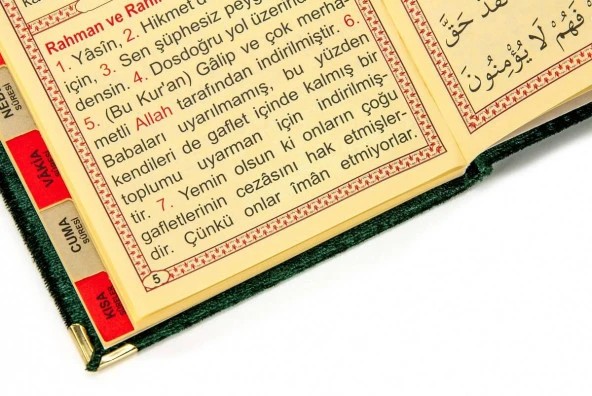 Rahman ve Rahi
1. Yâsîn, 2. Hikmet'd
için, 3. Sen şüphesiz peyg
densin. 4. Dosdoğru yol üzerind
5. (Bu Kur'an) Gâlip ve çok merha-
metli Allah tarafından indirilmiştir. 6.
Babaları uyarılmamış, bu yüzden
kendileri de gaflet içinde kalmış bir
toplumu uyarman için indirilmiş-
tir. 7. Yemin olsun ki onların çoğu
gafletlerinin cezâsını hak etmişler-
dir. Çünkü onlar îmân etmiyorlar.
5
حَقَّ
فَهُمْ لَا يُؤْمِنُونَ
NEB
SÛRESİ
VÂKIA
SÛRESİ
CUMA
SÛRESİ
KISA